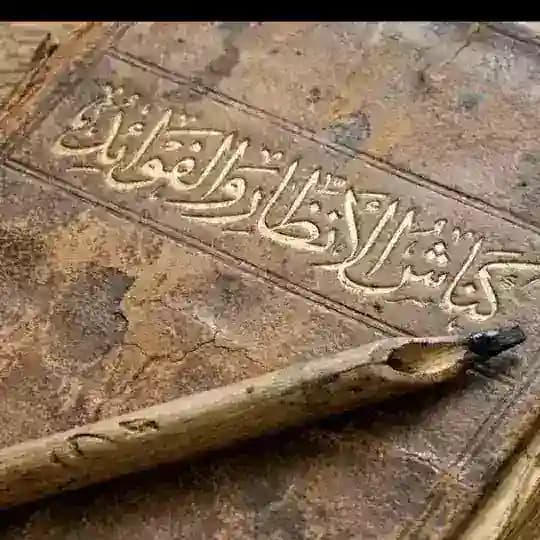 كناش الأنظار والفوائد